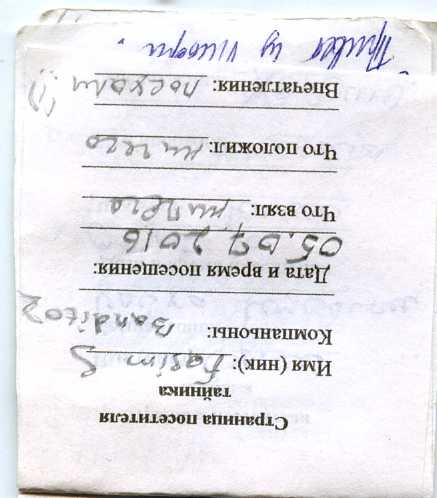 Страница посетителя
тайника
Имя (ник):
Компаньоны:
Bandito2
Дата и время посещения:
05.07.2016
Что взял: ничего
Что положил: ничего
Впечатления: поехали :)
Привет из